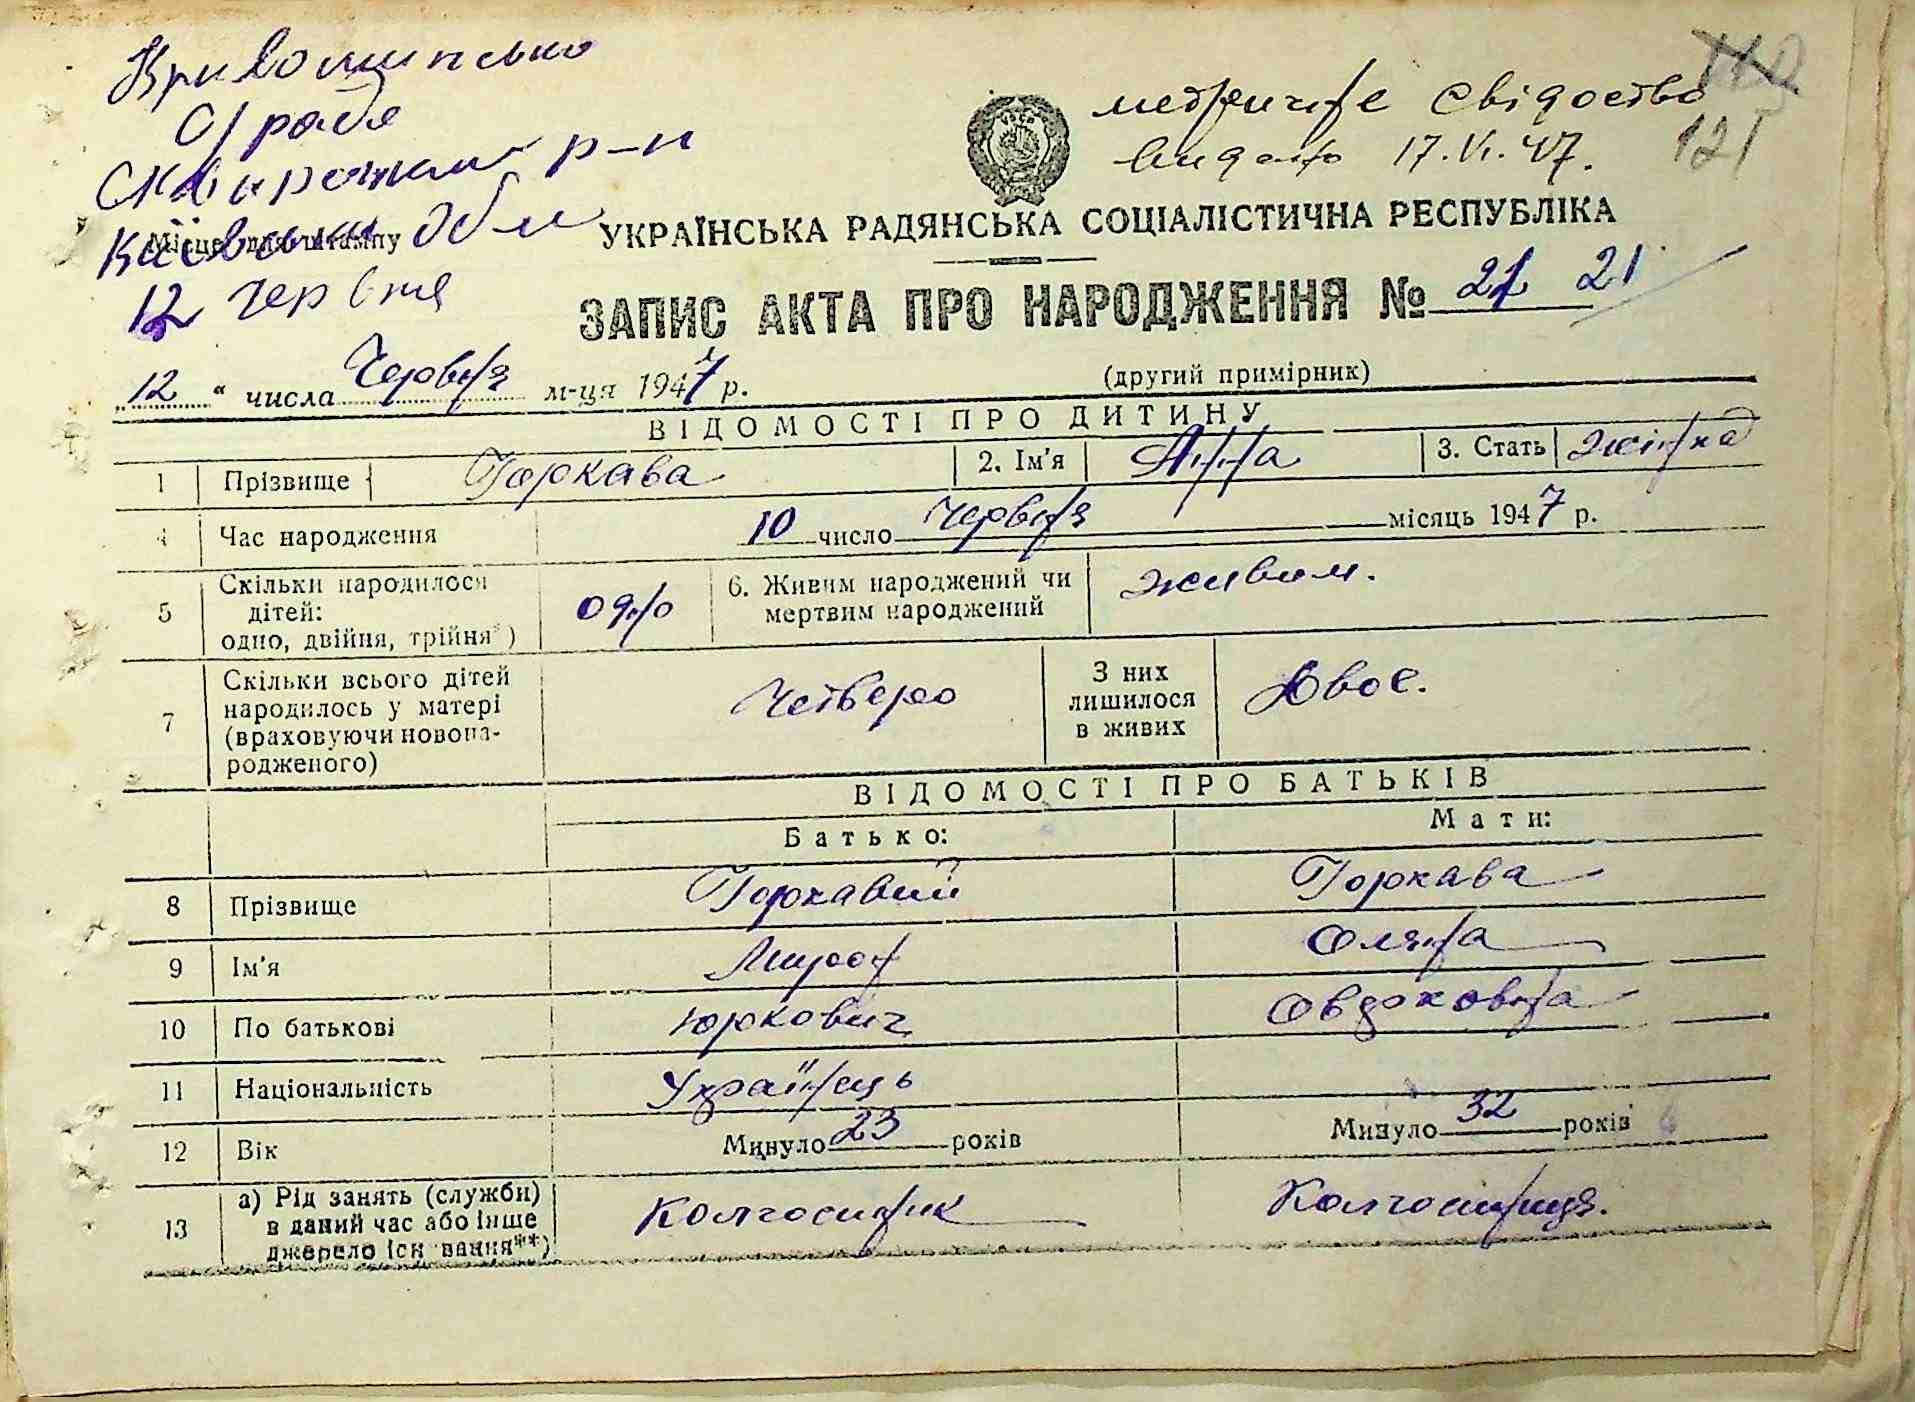 Кривошиїнсько
С/рада
Сквирський р-н
Київськи обл
Місце для штампу
12 червня
метричне свідоство
видано 17.VI.47.
121
УКРАЇНСЬКА РАДЯНСЬКА СОЦІАЛІСТИЧНА РЕСПУБЛІКА
ЗАПИС АКТА ПРО НАРОДЖЕННЯ № 21 21
„12“ числа Червня м-ця 1947 р.
(другий примірник)
ВІДОМОСТІ ПРО ДИТИНУ
1 Прізвище Горкава 2. Ім'я Анна 3. Стать жінка
4 Час народження 10 число Червня місяць 1947 р.
5 Скільки народилося дітей: одно, двійня, трійня*) одно 6. Живим народжений чи мертвим народжений живим.
7 Скільки всього дітей народилось у матері (враховуючи новонародженого) Четверо З них лишилося в живих Двоє.
ВІДОМОСТІ ПРО БАТЬКІВ
Батько: Мати:
8 Прізвище Горкавий Горкава
9 Ім'я Мирон Оляна
10 По батькові Юркович Овдоковна
11 Національність Українець
12 Вік Минуло 23 років Минуло 32 років
13 а) Рід занять (служби) в даний час або інше джерело існування**) Колгоспник Колгоспниця.